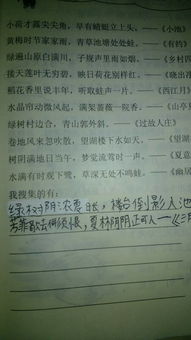 小荷才露尖尖角，早有蜻蜓立上头。——《小池》
黄梅时节家家雨，青草池塘处处蛙。——《有约》
绿遍山原白满川，子规声里雨如烟。——《乡村四
接天莲叶无穷碧，映日荷花别样红。——《晓出净
稻花香里说丰年，听取蛙声一片。——《西江月》
水晶帘动微风起，满架蔷薇一院香。——《山亭
绿树村边合，青山郭外斜。——《过故人庄》
卷地风来忽吹散，望湖楼下水如天。——《
树阴满地日当午，梦觉流莺时一声。——《夏意
水满有时观下鹭，草深无处不鸣蛙。——《
我搜集的有：
绿树阴浓夏日长，楼台倒影入池
芳菲歇去何须恨，夏木阴阴正可人——《三月